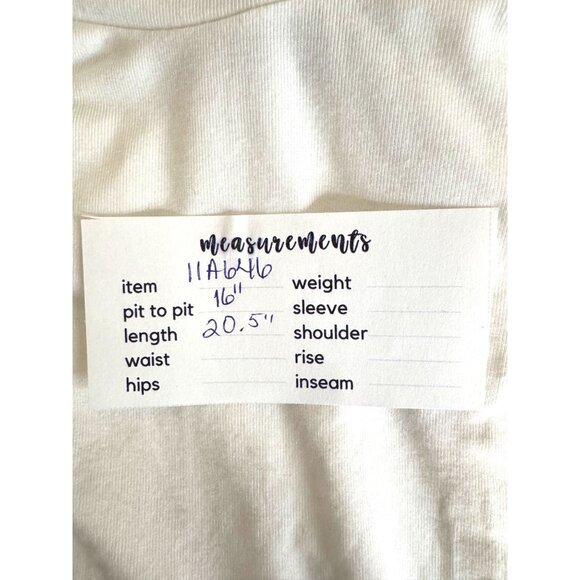 measurements
item 11A646
pit to pit 16"
length 20.5"
waist
hips
weight
sleeve
shoulder
rise
inseam